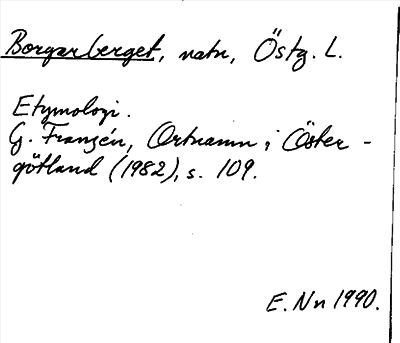 Borgarberget, natn, Östg. L.
Etymologi.
G. Franzén, Ortnamn i Öster-
götland (1982), s. 109.
E. Nn 1990.